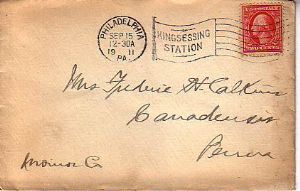 PHILADELPHIA
SEP 15
12-30A
19 11
PA.
KINGSESSING
STATION
Mrs Frederic H. Calkins
Canadensis
Penna
Monroe Co